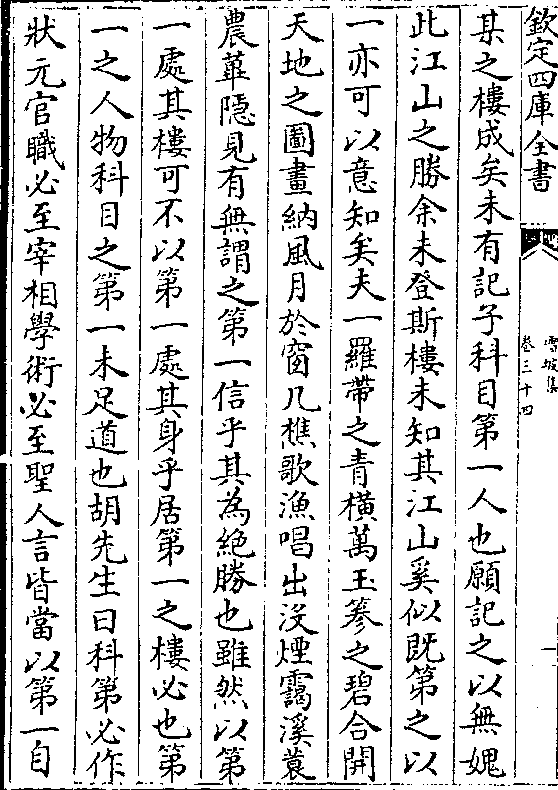 欽定四庫全書
雪坡集
卷三十四
某之樓成矣未有記子科目第一人也願記之以無媿
此江山之勝余未登斯樓未知其江山奚似既第之以
一亦可以意知矣夫一羅帶之青橫萬玉篸之碧合開
天地之圖畫納風月於窗几樵歌漁唱出沒煙靄溪蓑
農蓑隱見有無謂之第一信乎其為絶勝也雖然以第
一處其樓可不以第一處其身乎居第一之樓必也第
一之人物科目之第一未足道也胡先生曰科第必作
狀元官職必至宰相學術必至聖人言皆當以第一自